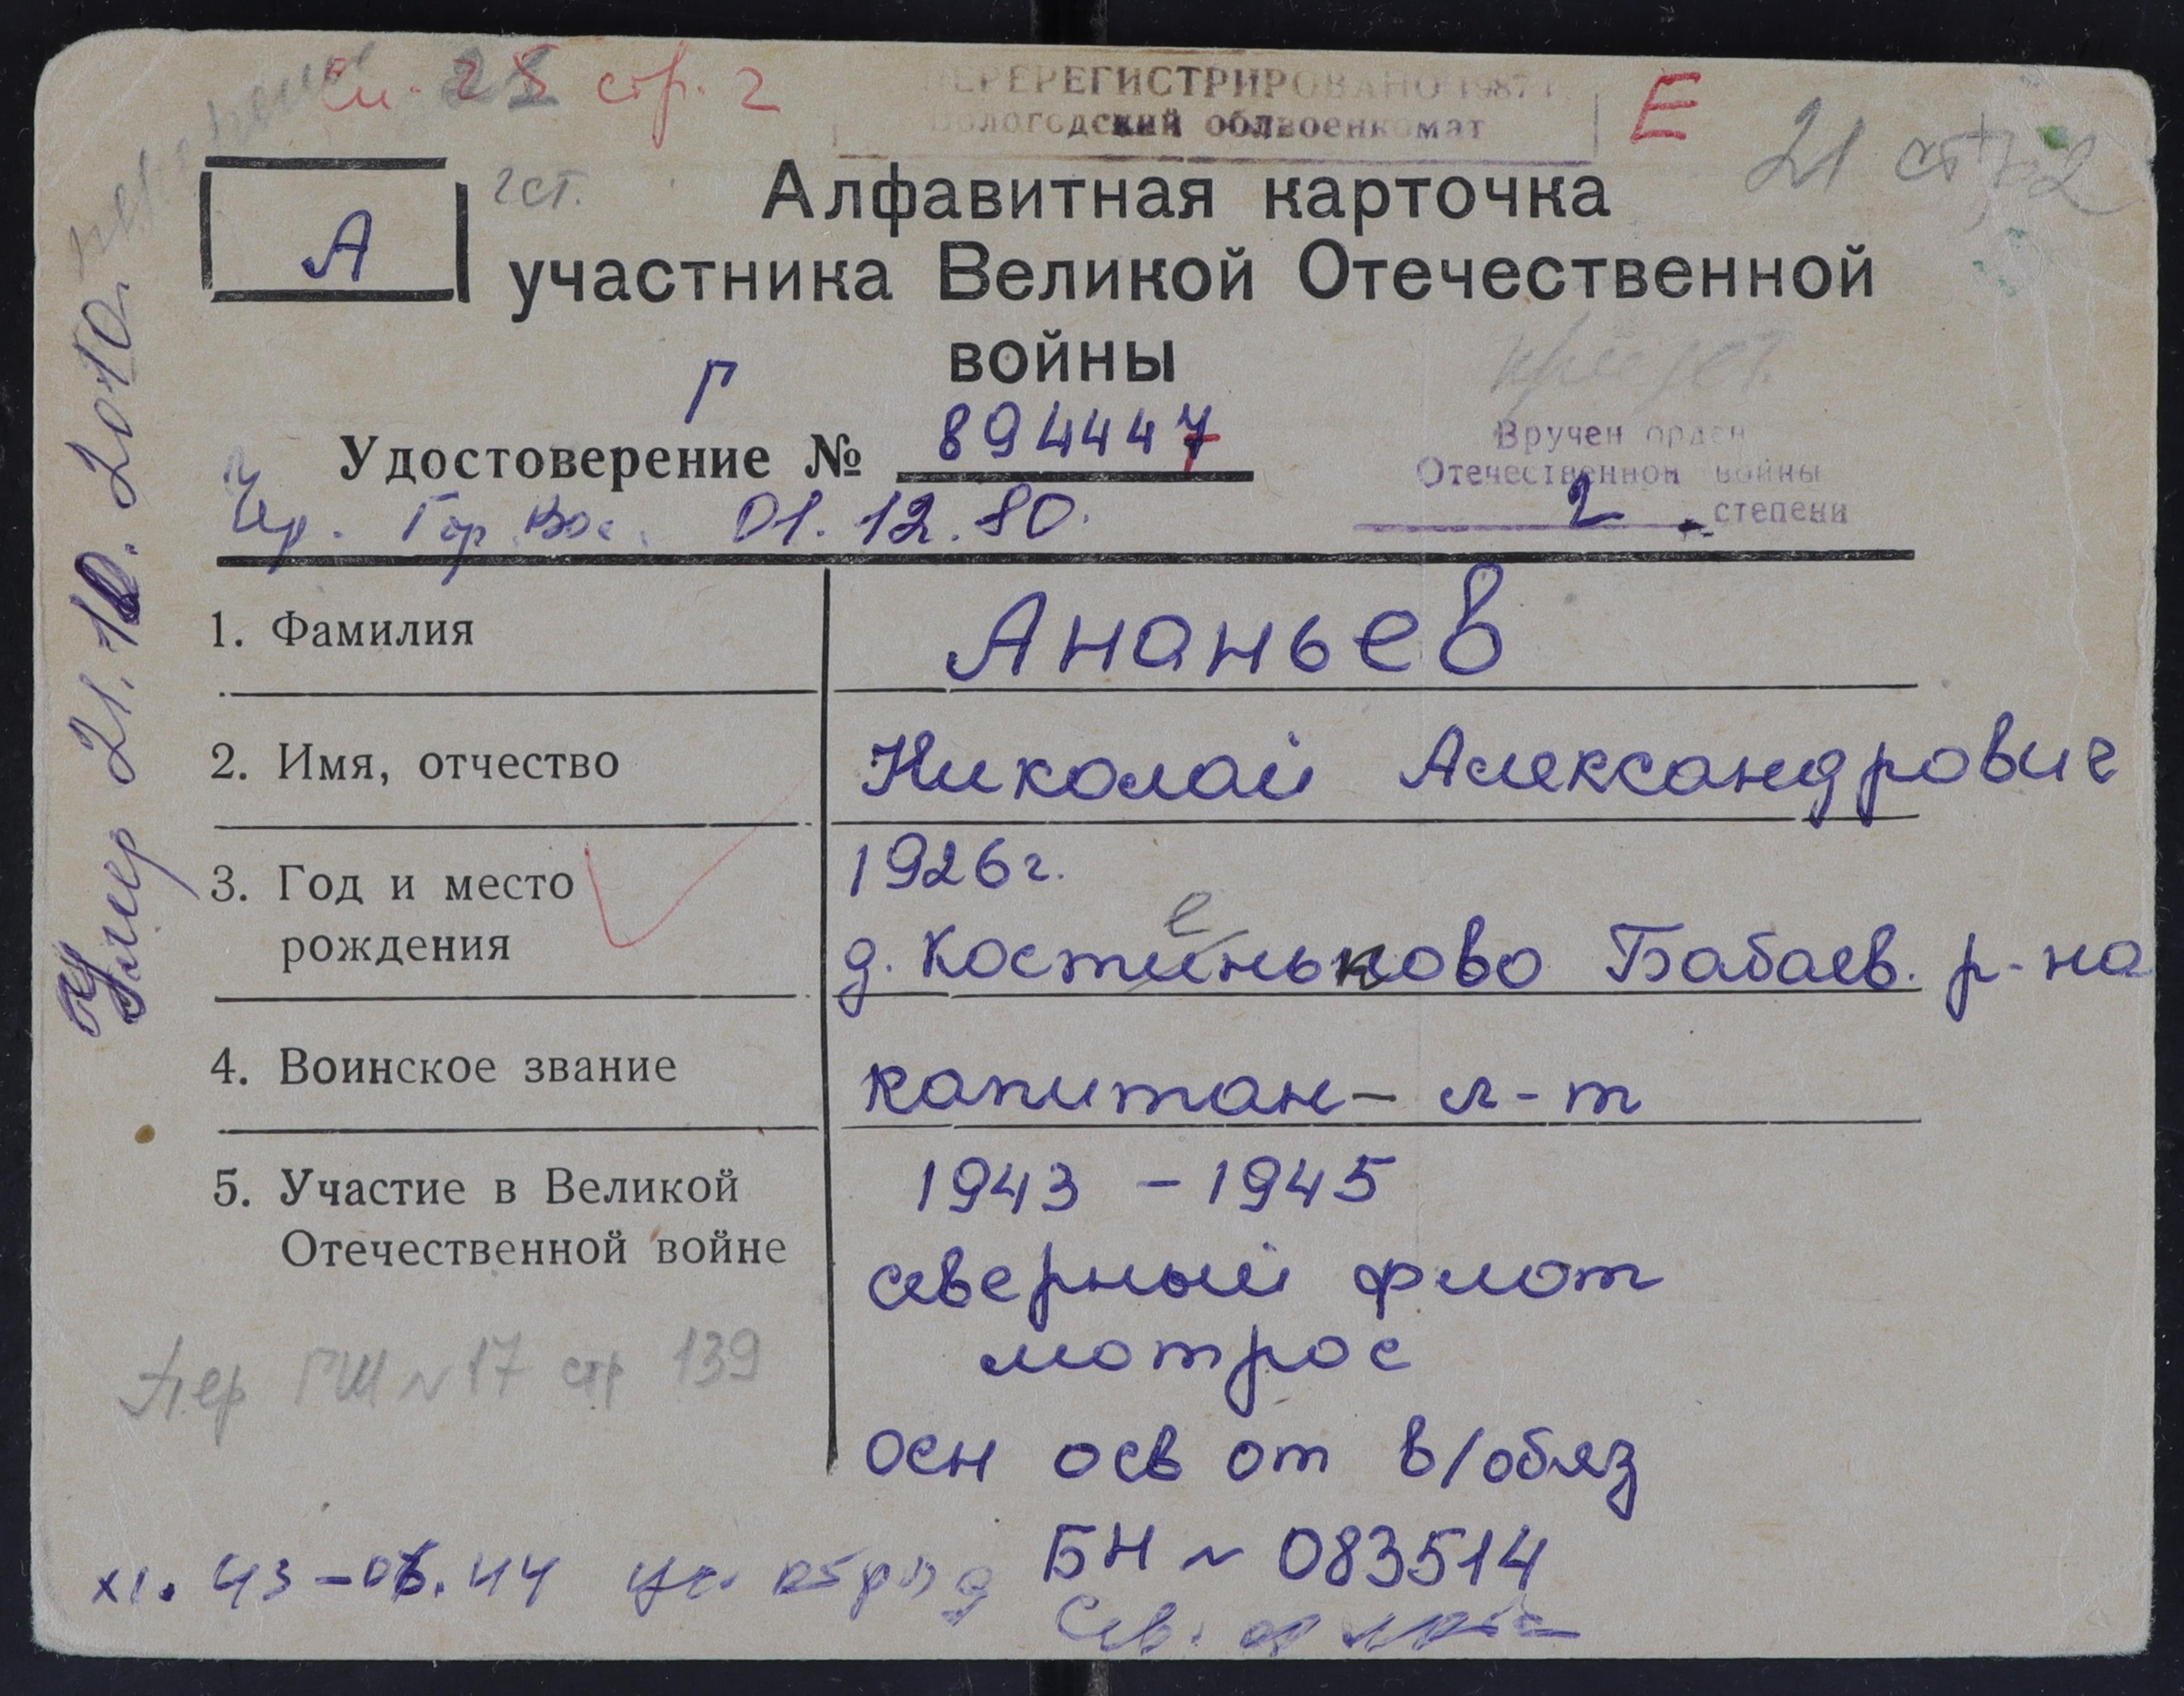 стр. 2
ПЕРЕРЕГИСТРИРОВАНО 1987 г.
Вологодский облвоенкомат
Е
21 стр 2
А
2 ст.
Алфавитная карточка
участника Великой Отечественной
войны
Г
Удостоверение № 894447
Вручен орден
Отечественной войны
2 степени
Чер. Гор. Вое. 01.12.80.
Умер 21.10.2010.
1. Фамилия Ананьев
2. Имя, отчество Николай Александрович
3. Год и место 1926 г.
рождения д. Костеньково Бабаев. р-на
4. Воинское звание капитан - л-т
5. Участие в Великой 1943 - 1945
Отечественной войне северный флот
матрос
Пер ГШ N 17 стр 139
осн осв от в/обяз
БН N 083514
XI. 43 - 06. 44
Сев. флота